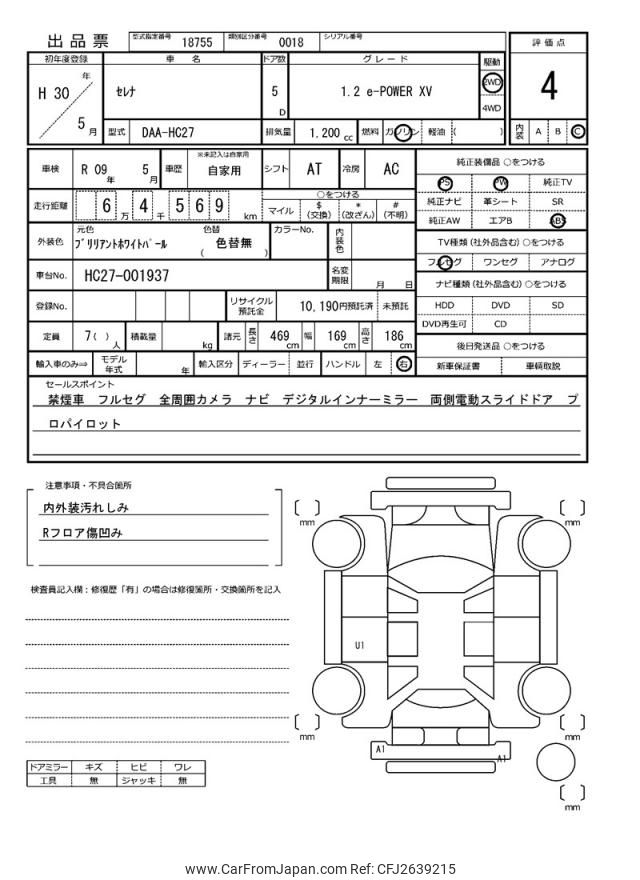 出品票 型式指定番号 18755 類別区分番号 0018 シリアル番号
評価点
4
内装 A B C
初年度登録 車名 ドア数 グレード 駆動
H 30 年 5 月 セレナ 5 D 1.2 e-POWER XV 2WD 4WD
型式 DAA-HC27 排気量 1,200 cc 燃料 ガソリン 軽油 ( )
車検 R 09 年 5 月 車歴 ※未記入は自家用 自家用 シフト AT 冷房 AC
純正装備品 ○をつける
PS PW 純正TV
純正ナビ 革シート SR
純正AW エアB ABS
走行距離 6 万 4 千 5 6 9 km
○をつける
マイル $(交換) *(改ざん) #(不明)
TV種類(社外品含む) ○をつける
フルセグ ワンセグ アナログ
外装色 元色 ブリリアントホワイトパール 色替 ( 色替無 ) カラーNo. 内装色
車台No. HC27-001937 名変期限 月 日
ナビ種類(社外品含む) ○をつける
HDD DVD SD
DVD再生可 CD
登録No. リサイクル預託金 10,190円預託済 未預託
定員 7( )人 積載量 kg 諸元 長さ 469 cm 幅 169 cm 高さ 186 cm
後日発送品 ○をつける
新車保証書 車輌取説
輸入車のみ⇒ モデル年式 年 輸入区分 ディーラー 並行 ハンドル 左 右
セールスポイント
禁煙車 フルセグ 全周囲カメラ ナビ デジタルインナーミラー 両側電動スライドドア プ
ロパイロット
注意事項・不具合箇所
内外装汚れしみ
Rフロア傷凹み
検査員記入欄:修復歴「有」の場合は修復箇所・交換箇所を記入
mm
mm
U1
mm
mm
A1
A1
mm
ドアミラー キズ ヒビ ワレ
工具 無 ジャッキ 無
www.CarFromJapan.com Ref: CFJ2639215